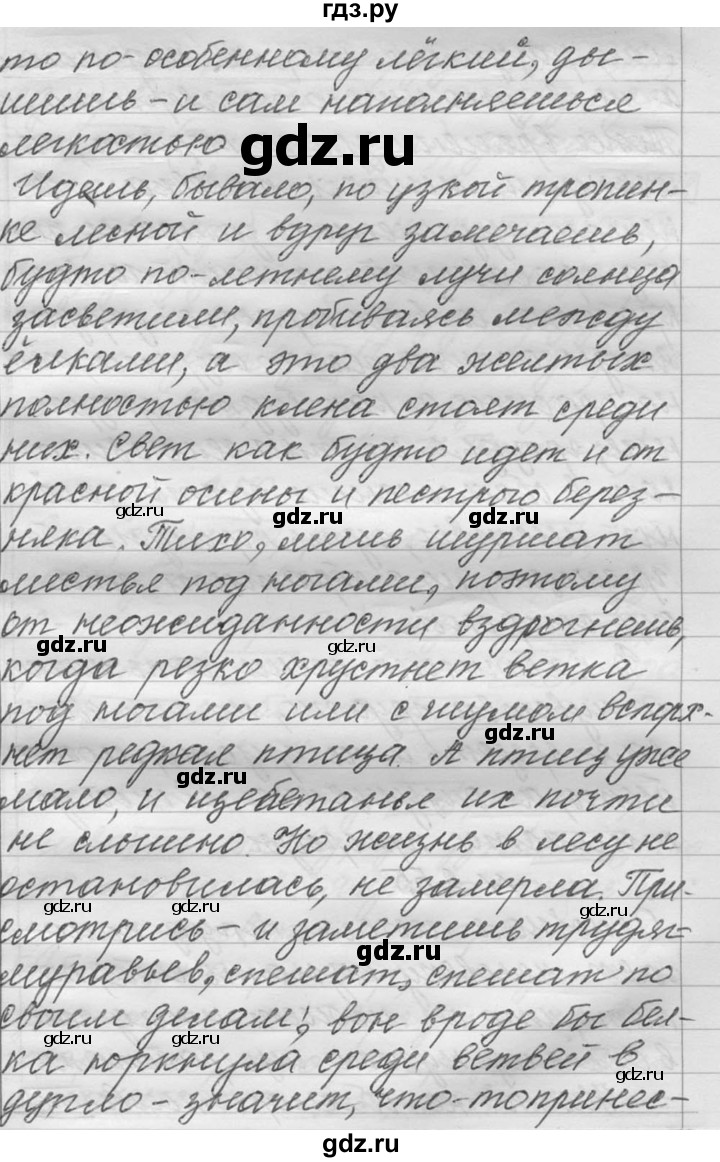 гдз.ру
то по-особенному лёгкий, ды-
шишь - и сам наполняешься
легкостью
gdz.ru
Идешь, бывало, по узкой тропин-
ке лесной и вдруг замечаешь,
будто по-летнему лучи солнца
засветили, пробиваясь между
ёлками, а это два желтых
полностью клена стоят среди
них. Свет как будто идет и от
красной осины и пестрого берез-
gdz.ru
gdz.ru
gdz.ru
няка. Тихо, лишь шуршат
листья под ногами, поэтому
от неожиданности вздрогнешь,
gdz.ru
gdz.ru
когда резко хрустнет ветка
под ногами или с шумом вспорх-
gdz.ru
нет редкая птица. А птиц уже
gdz.ru
мало, и щебетанья их почти
не слышно. Но жизнь в лесу не
остановилась, не замерла. При-
gdz.ru
gdz.ru
gdz.ru
смотрись - и заметишь трудяг-
gdz.ru
муравьев, спешат, спешат по
своим делам!, вон вроде бы бел-
gdz.ru
gdz.ru
ка юркнула среди ветвей в
gdz.ru
дупло - значит, что-то принес-
gdz.ru